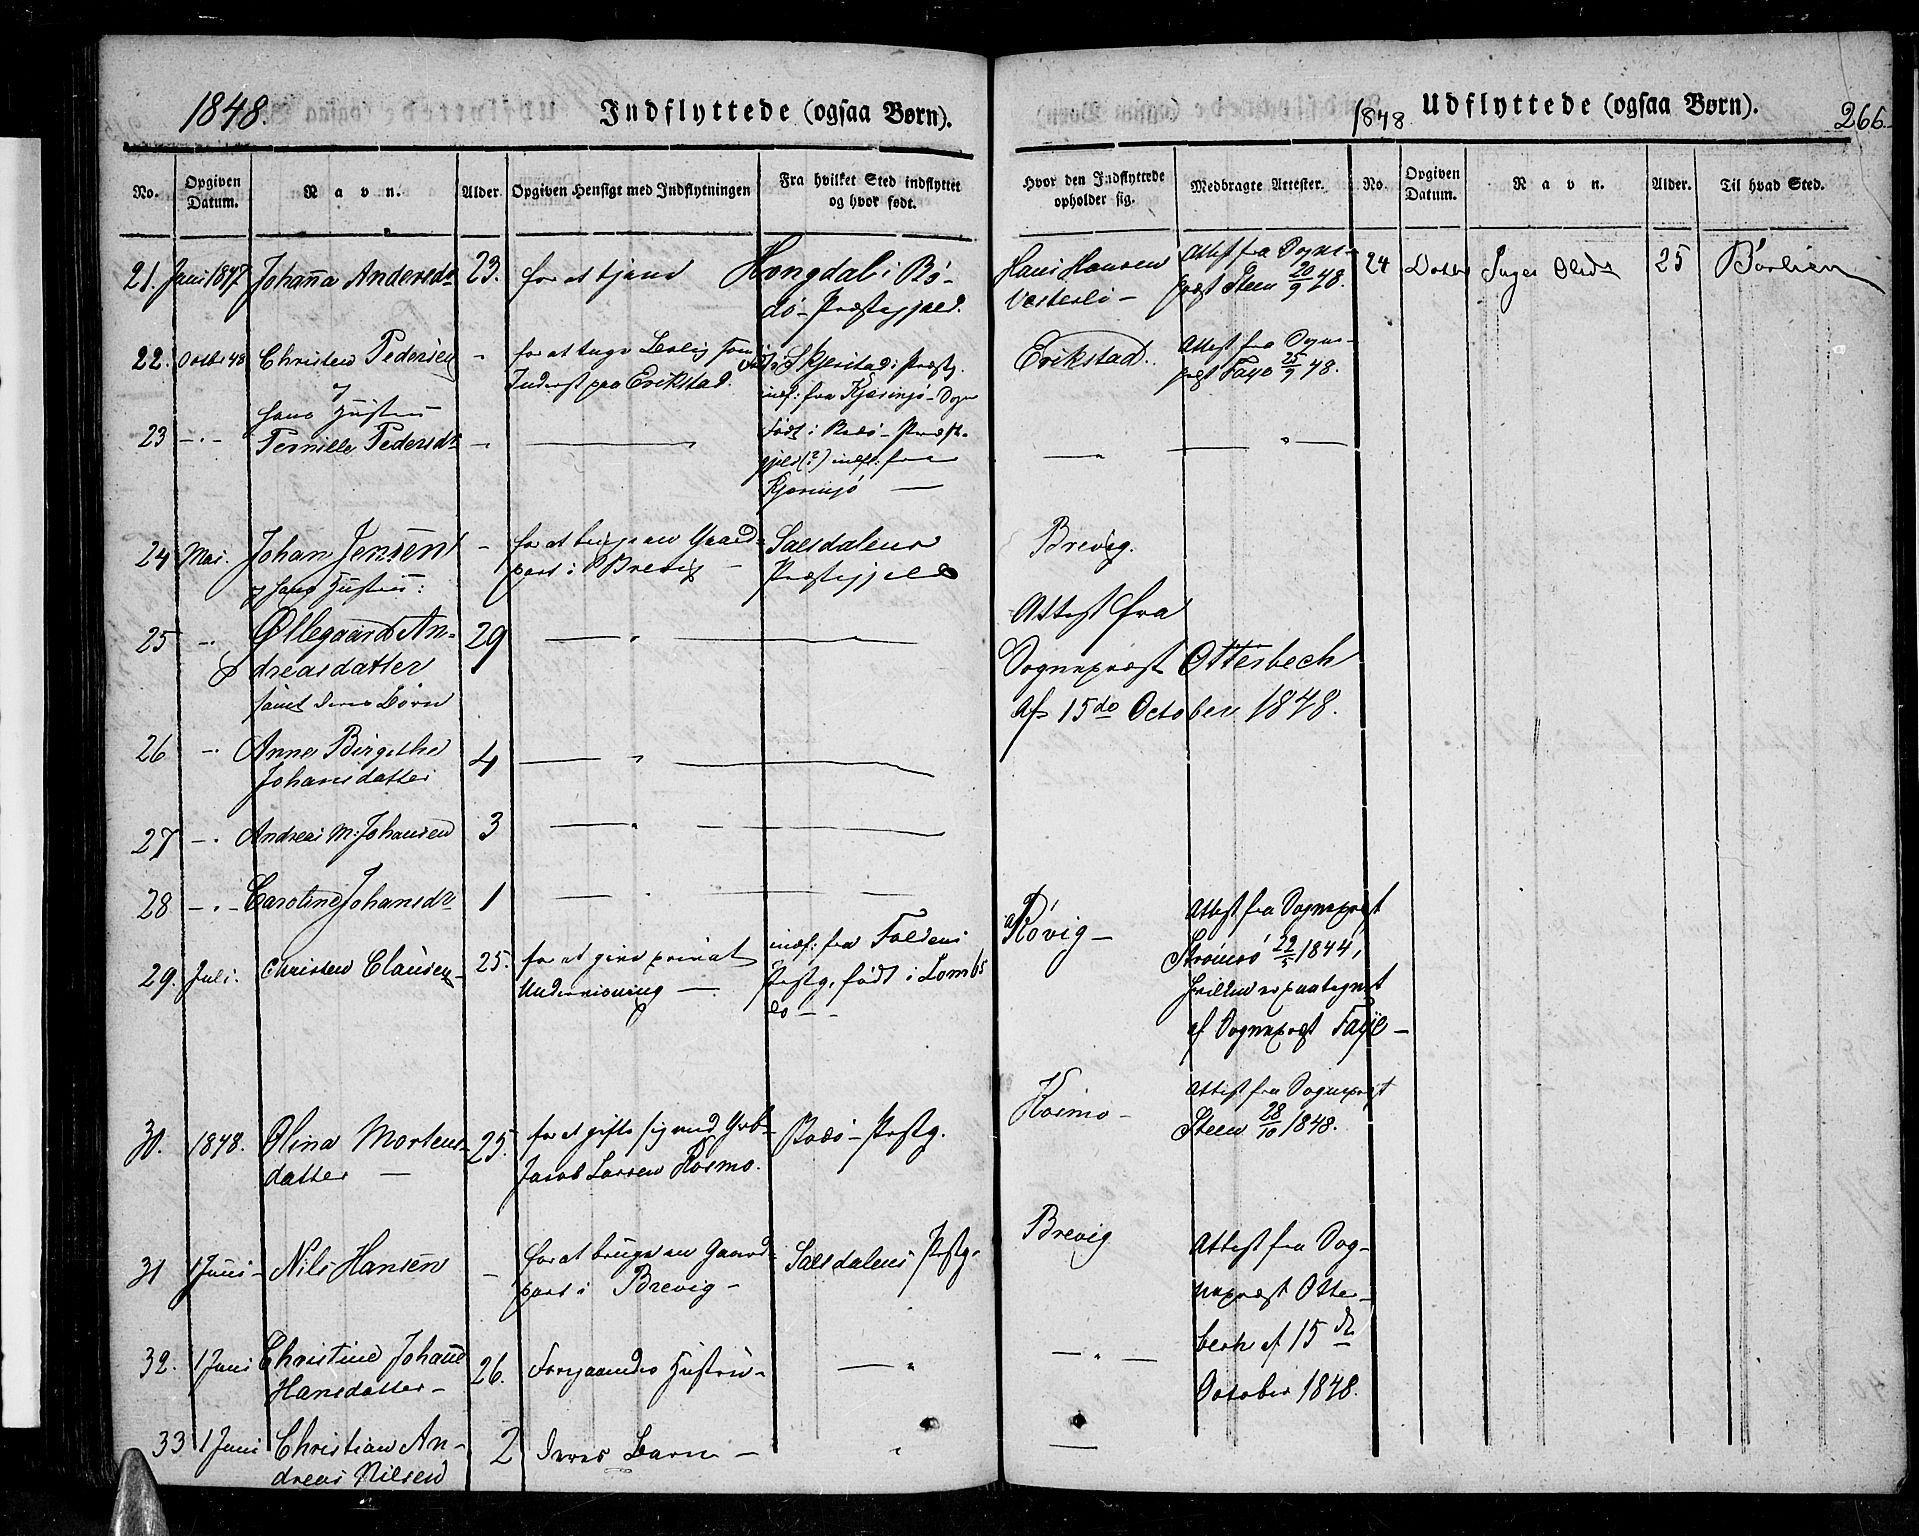 1848.
Indflyttede (ogsaa Børn).
No.
Opgiven Datum.
Navn.
Alder.
Opgiven Hensigt med Indflytningen
Fra hvilket Sted indflyttet og hvor født.
21. Juni 1847 Johanna Andersdr 23. for at tjene
Præstegjeld.
22. Octbr 48 Christen Pedersen - for at tage Bolig som
Inderst paa Erikstad.
indf: fra Kjæringø - Sogn
hans Hustru
23 -"- Pernille Pedersdr - — " —
Født i Bodø - Præste-
gjeld (?) indf: fra
Kjæringø —
24 Mai. Johan Jensen - for at bruge en Gaard- Salsdalens
part i Brevig - Præstegjeld
og hans Hustru:
25 -"- Øllegaard An- 29 — " —
dreasdatter
samt deres Børn
26 -"- Anne Birgithe 4 — " —
Johansdatter
27 -"- Andreas M: Johansen 3 — " —
28 -"- Caroline Johansdr 1 — " —
29. Juli. Christen Clausen 25. for at give privat indf: fra Foldens
Underviisning - Prstg. født i Lombs-
30. 1848. Olina Mortens- 25. for at gifte sig med Gbr. Bodø - Prstg.
datter - Jacob Larsen Kosmo.
31 1 Juni - Nils Hansen - for at bruge en Gaard- Salsdalens Prstg.
part i Brevig -
32. 1 Juni Christine Johanne 26. Forgaaendes Hustru - — " —
Hansdatter -
33 1 Juni Christian An- 2 deres Barn - "
dreas Nilsen
1848
Udflyttede (ogsaa Børn).
266.
Hvor den Indflyttede opholder sig.
Medbragte Attester.
No.
Opgiven Datum.
Navn.
Alder.
Til hvad Sted.
Hans Hansen Attest fra Sogne-
Vesterlø - præst Steen 20/9 48.
24 Octbr Inger Olsdr 25
Erikstad. Attest fra Sogne-
præst Faye 25/9 48.
— " — — " —
Brevig.
Attest fra
Sognepræst Otterbech
Af 15de October 1848.
Røvig - Attest fra Sognepræst
Strømsø 22/5 1844,
hvilken er paategnet
af Sognepræst Faye -
Kosmo - Attest fra Sognepræst
Steen 28/10 1848.
Brevig Attest fra Sog-
nepræst Otter-
— " — bech af 15de
October 1848.
—